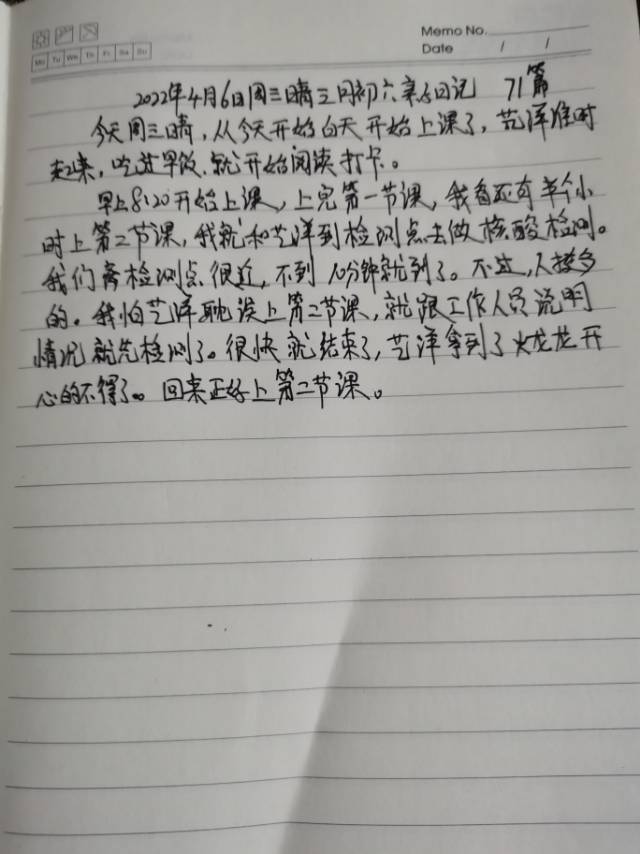 Memo No.
Mo Tu We Th Fr Sa Su
Date / /
2022年4月6日周三晴三月初六亲子日记 71篇
今天周三晴,从今天开始白天开始上课了,艺洋准时
起来,吃过早饭.就开始阅读打卡。
早上8:20开始上课,上完第一节课,我看还有半个小
时上第二节课,我就和艺洋到检测点去做核酸检测。
我们离检测点很近,不到10分钟就到了。不过,人挺多
的。我怕艺洋耽误上第二节课,就跟工作人员说明
情况就先检测了。很快就结束了,艺洋拿到了火龙龙开
心的不得了。回来正好上第二节课。